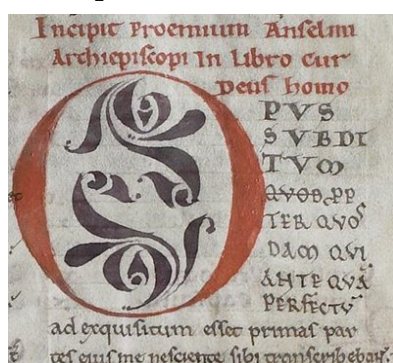 Incipit Proemium Anselmi
Archiepiscopi In Libro Cur
Deus homo
OPUS
SUBDI
TUM
QUOD PP
TER QUOS
DAM QUI
ANTE QUĀ
PERFECTŪ
ad exquisitum esset primas par
tes eius me nesciente sibi transcribebant